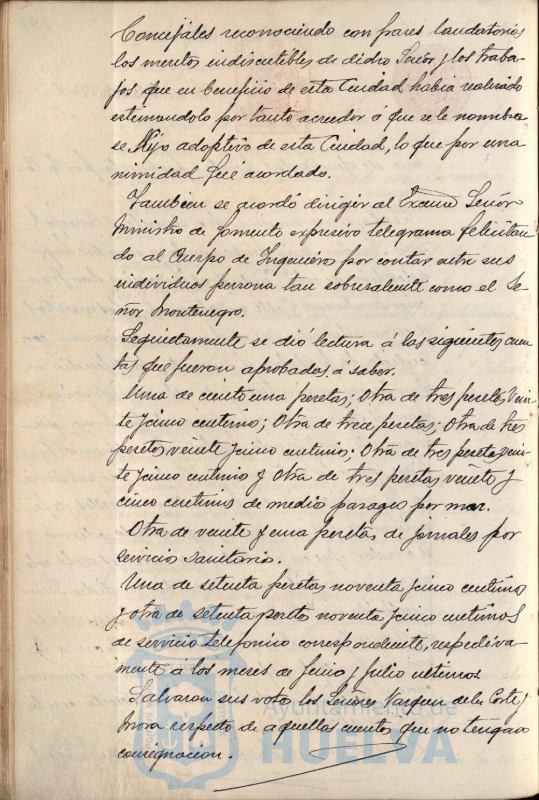 Concejales reconociendo con frases laudatorias
los meritos indiscutibles de dicho Señor y los traba-
jos que en beneficio de esta Ciudad habia realizado
estimandolo por tanto acreedor á que se le nombra-
se Hijo adoptivo de esta Ciudad, lo que por una-
nimidad fué acordado.
Tambien se acordó dirigir al Excmo Señor
Ministro de fomento expresivo telegrama felicitan-
do al Cuerpo de Ingenieros por contar entre sus
individuos persona tan sobresaliente como el Se-
ñor Montenegro.
Seguidamente se dió lectura á las siguientes cuen-
tas que fueron aprobadas á saber.
Una de ciento una pesetas; Otra de tres pesetas vein-
te y cinco centimos; Otra de trece pesetas; Otra de tres
pesetas veinte y cinco centimos; Otra de tres pesetas vein-
te y cinco centimos y otra de tres pesetas veinte y
cinco centimos de medio pasages por mar.
Otra de veinte y una pesetas de jornales por
servicio sanitario.
Una de setenta pesetas noventa y cinco centimos
y otra de setenta pesetas noventa y cinco centimos
de servicio telefonico correspondiente, respectiva-
mente á los meses de Junio y Julio ultimos.
Salvaron sus votos los Señores Vazquez de la Corte y
Mora respecto de aquellas cuentas que no tengan
consignacion.
Ayuntamiento de
HUELVA